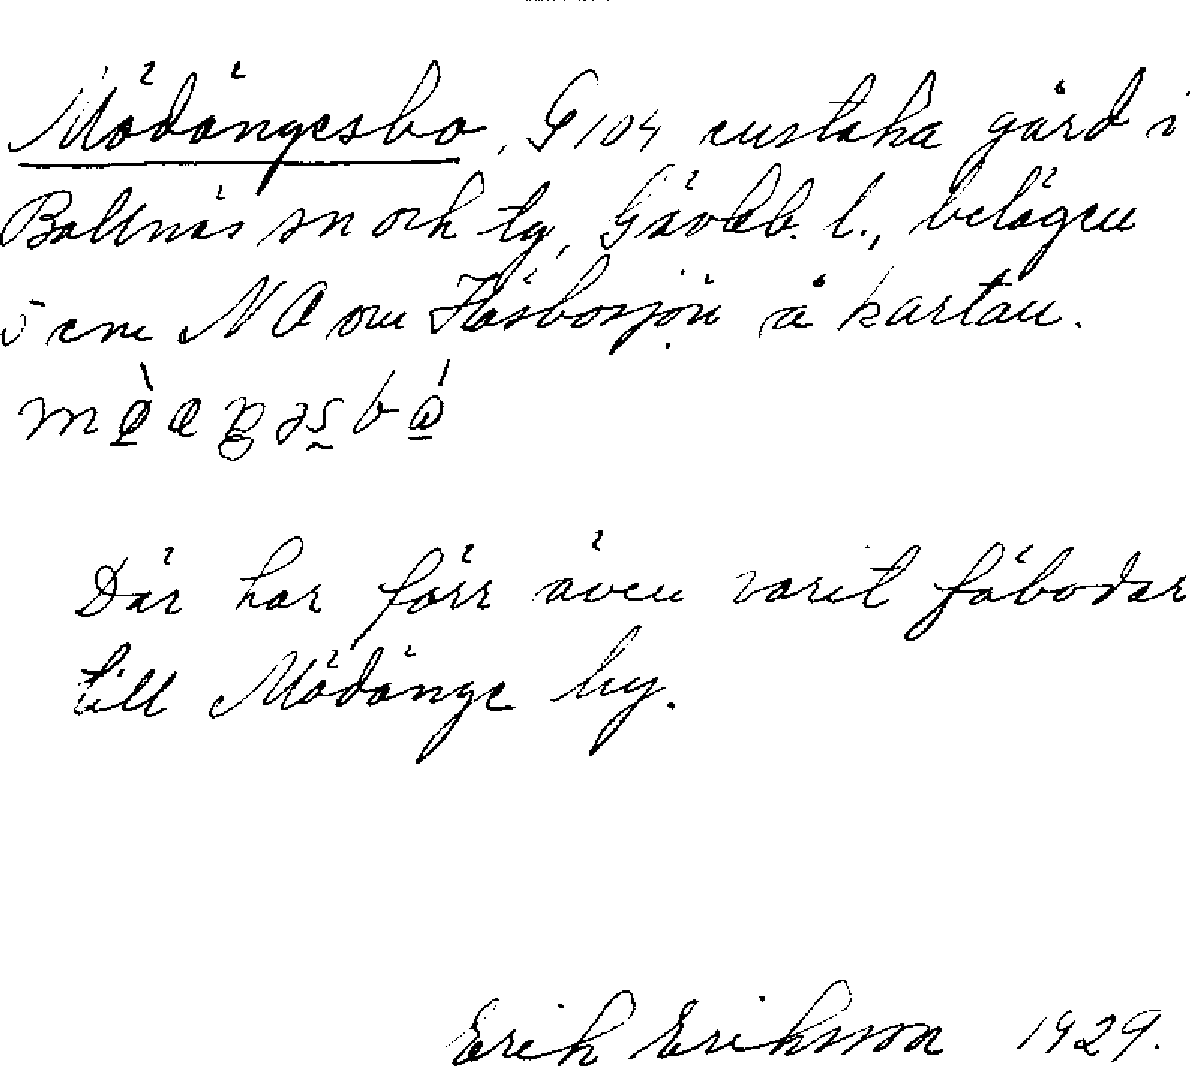 Mödängesbo, G 104 enstaka gård i
Bollnäs sn och tg, Gävleb. l., belägen
5 cm NO om Häsbosjön å kartan.
Där har förr även varit fäbodar
till Mödänge by.
Erik Eriksson 1929.